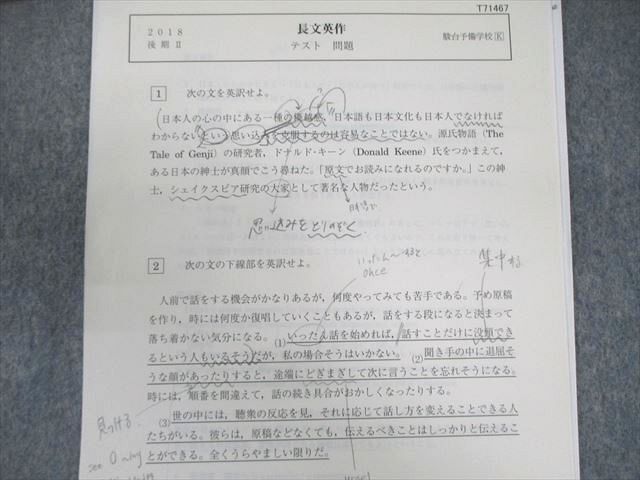 T71467
2018
後期Ⅱ
長文英作
テスト 問題
駿台予備学校 K
1 次の文を英訳せよ。
日本人の心の中にある一種の優越感，日本語も日本文化も日本人でなければ
わからないという思い込みを克服するのは容易なことではない。源氏物語（The
Tale of Genji）の研究者，ドナルド・キーン（Donald Keene）氏をつかまえて，
ある日本の紳士が真顔でこう尋ねた。「原文でお読みになれるのですか。」この紳
士，シェイクスピア研究の大家として著名な人物だったという。
思い込みをとりのぞく
2 次の文の下線部を英訳せよ。
いったん〜すると
once
集中する
人前で話をする機会がかなりあるが，何度やってみても苦手である。予め原稿
を作り，時には何度か復唱していくこともあるが，話をする段になると決まって
落ち着かない気分になる。(1)いったん話を始めれば，話すことだけに没頭でき
るという人もいるそうだが，私の場合そうはいかない。(2)聞き手の中に退屈そ
うな顔があったりすると，途端にどぎまぎして次に言うことを忘れそうになる。
時には，順番を間違えて，話の続き具合がおかしくなったりする。
(3)世の中には，聴衆の反応を見，それに応じて話し方を変えることできる人
たちがいる。彼らは，原稿などなくても，伝えるべきことはしっかりと伝えるこ
とができる。全くうらやましい限りだ。
見つける
see